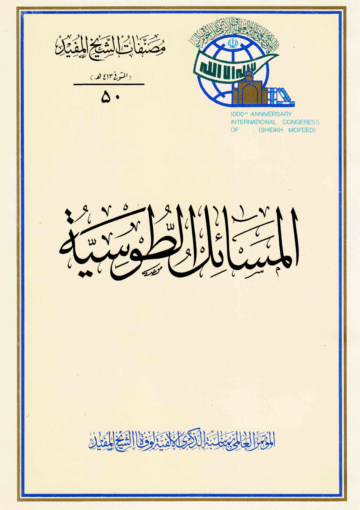 مصنفات الشيخ المفيد
(المتوفى ٤١٣ هـ)
٥٠
1000th ANNIVERSARY
INTERNATIONAL CONGERESS
OF (SHEIKH MOFEED)
المسائل الطوسية
المؤتمر العالمي بمناسبة الذكرى الألفية لوفاة الشيخ المفيد